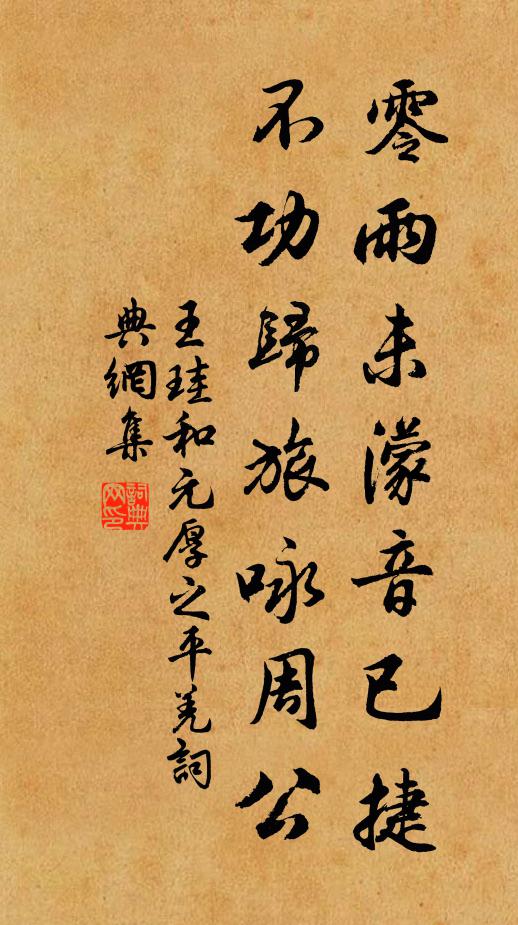 零雨未濛音已捷
不功歸旅咏周公
王珪和元厚之平羌詞
典網集
詞典
网印